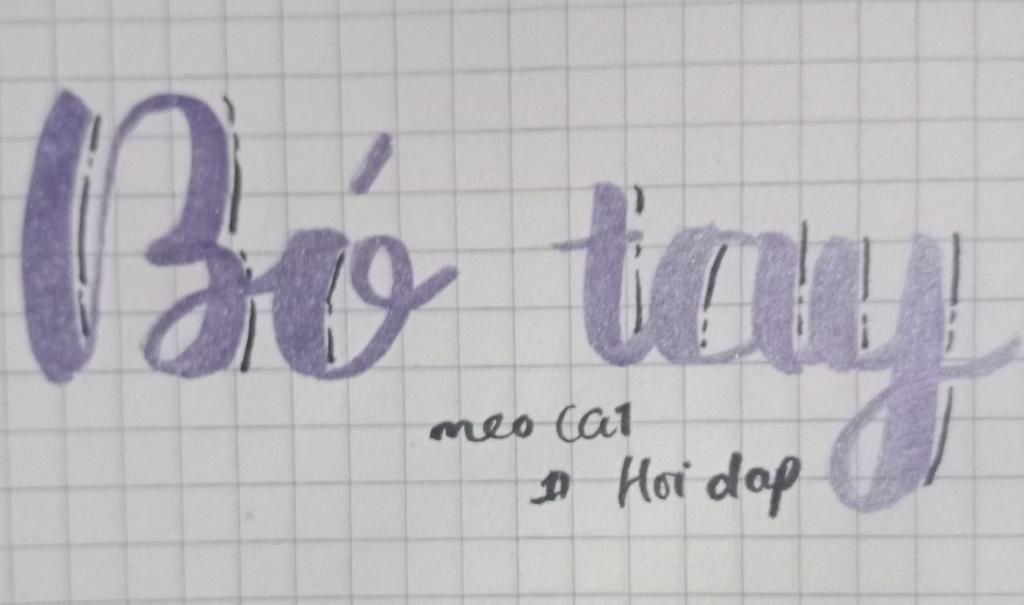 Bó tay
meo cat
Hoi dap